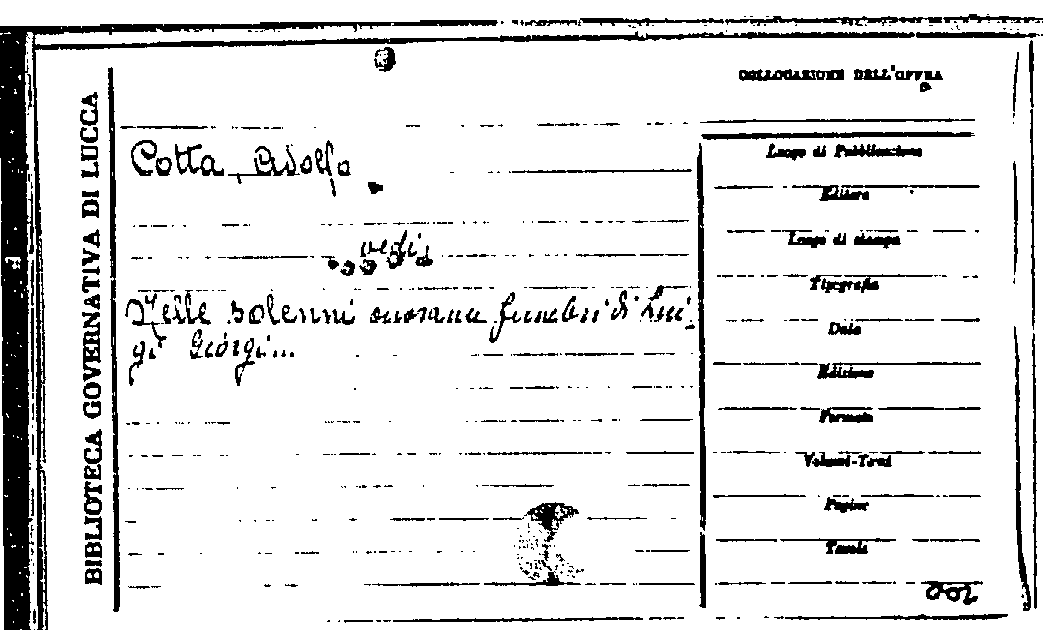 BIBLIOTECA GOVERNATIVA DI LUCCA
COLLOCAZIONE DELL'OPERA
Cotta, Adolfo
vedi
Nelle solenni onoranze funebri di Lui-
gi Giorgi...
Luogo di Pubblicazione
Editore
Luogo di stampa
Tipografia
Data
Edizione
Formato
Volumi-Tomi
Pagine
Tavole